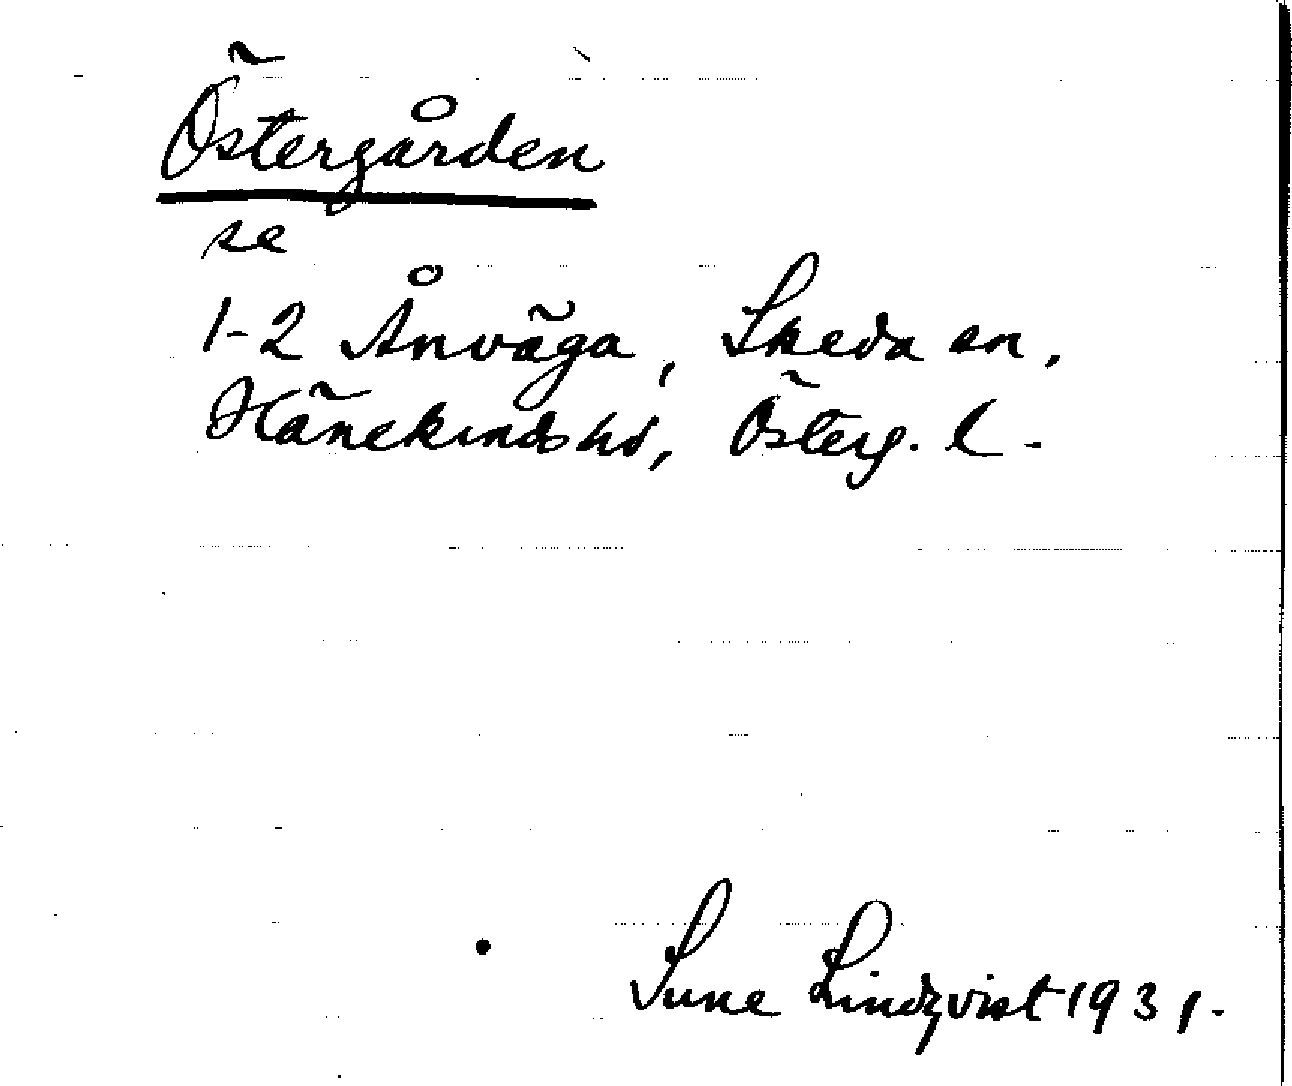 Östergården
se
1-2 Ånväga, Skeda sn,
Hänekinds hd, Österg. l.
Sune Lindqvist 1931.